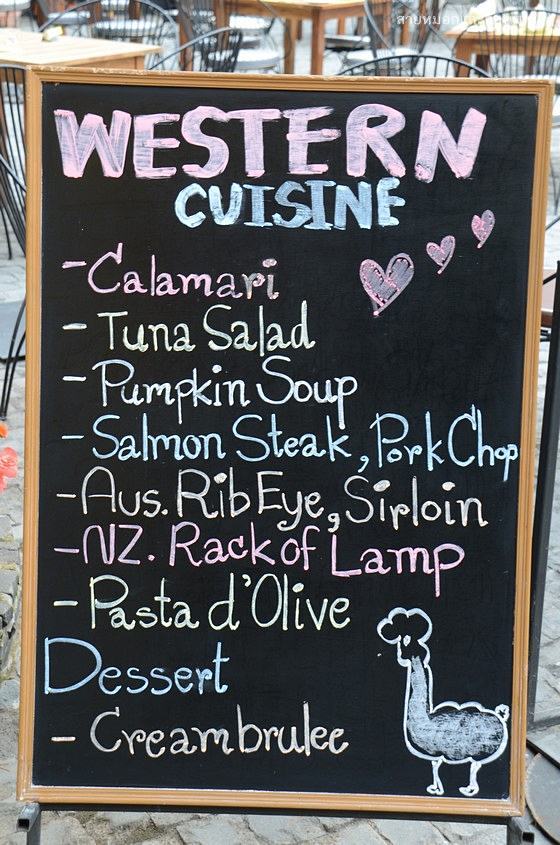 WESTERN
CUISINE
- Calamari
- Tuna Salad
- Pumpkin Soup
- Salmon Steak, Pork Chop
- Aus. Rib Eye, Sirloin
- NZ. Rack of Lamp
- Pasta d'Olive
Dessert
- Creambrulee